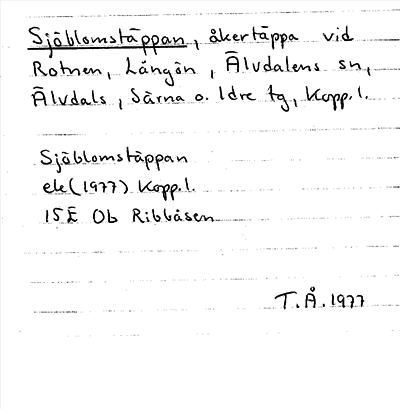 Sjöblomstäppan, åkertäppa vid
Rotnen, Långön, Älvdalens sn,
Älvdals, Särna o. Idre tg, Kopp.l.
Sjöblomstäppan
ek (1977) Kopp.l.
15E 0b Ribbåsen
T.Å. 1977